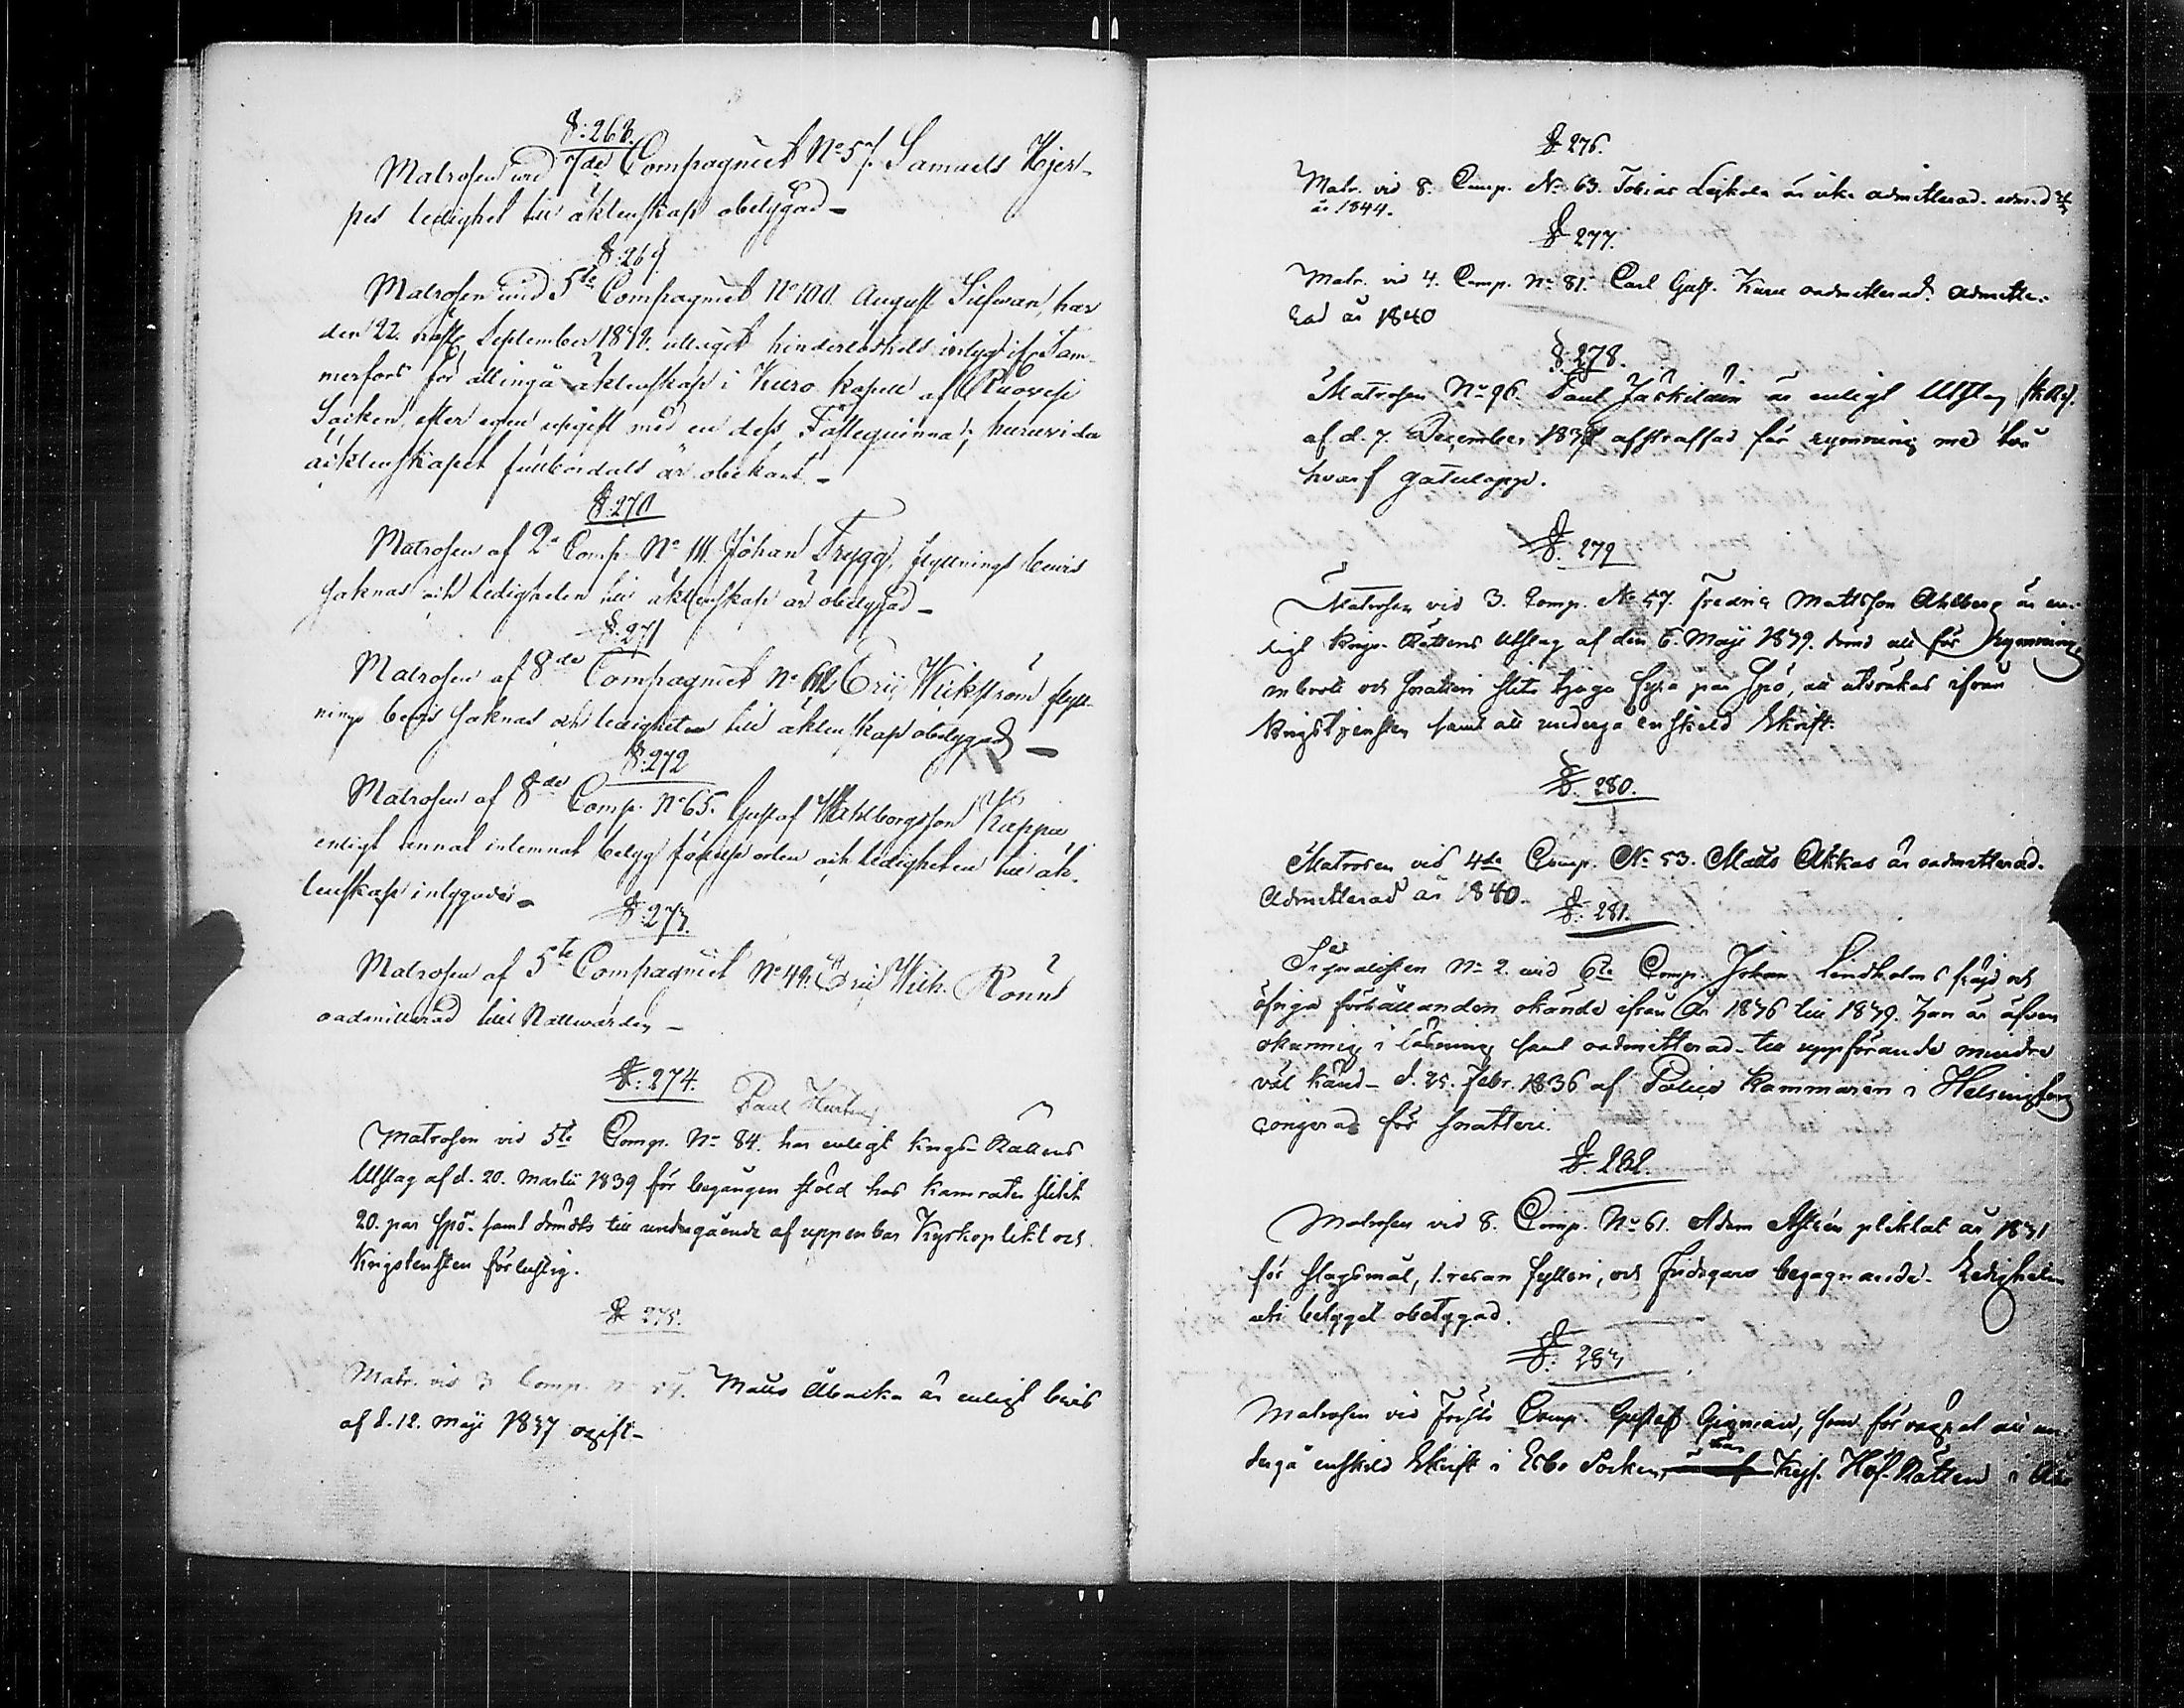 §:268.
Matrosen wid 7de Compagniet No 57. Samuels Hjer-
pes ledighet till äktenskap obetygad -
§:269
Matrosen wid 5te Compagniet No 100. August Sifwan, har
den 22. September 183 uttagit hinderlöshets intyg if. Tam-
merfors för att ingå äktenskap i Kuro kapell af Ruovesi
Socken, efter egen upgift med en dess Fästeqvinna; huruvida
äktenskapet fullbordats är obekant. -
§:270
Matrosen af 2a Comp. No 111. Johan Trygg, flyttnings bewis
saknas och ledigheten till äktenskap är obetygad -
§:271
Matrosen af 8de Compagniet No 62 Eric Wickström flytt-
nings bevis saknas och ledigheten till äktenskap obetygad -
§:272
Matrosen af 8de Comp. No 65. Gustaf Wahlborgsson Kappa
enligt annat inlemnat betyg födelse orten och ledigheten till äk-
tenskap intygades -
§:273.
Matrosen af 5te Compagniet No 49. Eric Wilh. Rönns
oadmitterad till Nattwarden -
§:274.
Paul
Matrosen vid 5te Comp. No 84. har enligt Krigs-Rättens
Utslag af d. 20. Martii 1839 för begången stöld hos kamrater slitit
20. par spö. samt dömdts till undergående af uppenbar Kyrkoplikt och
Krigstensten förlustig.
§ 275.
Matr. vid 3 Comp. No 54. Matts Åbacka är enligt bevis
af d. 12. Maji 1837 ogift -
§ 276.
Matr. vid 8. Comp. No 63. Tobias Lejkola är icke admitterad. adm. d
år 1844.
§ 277.
Matr. vid 4. Comp. No 81. Carl Gust. Kura oadmitterad. Admitte-
rad år 1840
§:278.
Matrosen No 96. Paul Jäskiläin är enligt Utslag
af d. 7. December 1838 afstraffad för rymning med två
hvarf gatulopp.
§. 279
Matrosen vid 3. Comp. No 57. Fredric Mattsson Ahlberg är en-
ligt Krigs-Rättens Utslag af den 6. Maji 1839. dömd att för Rymning
inbrott och snatteri slita tjugo fyra par Spö, att utstrukas ifrån
Krigstjensten samt att undergå enskild Skrift.
§. 280.
Matrosen vid 4de Comp. No 53. Matts Akkas är oadmitterad.
Admitterad år 1840.
§. 281.
Signalisten No 2. wid 6te Comp. Johan Lindholms frejd och
öfriga förhållanden okände ifrån år 1836 till 1839. Han är äfven
okunnig i läsning samt oadmitterad. till uppförande mindre
väl känd - d. 25. Febr. 1836 af Police Kammaren i Helsingfors
corrigerad för snatteri.
§. 282.
Matrosen vid 8. Comp. No 61. Adam Aftén pliktat år 1831
för slagsmål, 1. resan fylleri, och Eidsgans begagnande. Ledigheten
uti betyget obetygad.
§. 283
Matrosen vid Första Comp. Gustaf Gigman, som för vägrat att un-
dergå enskild Skrift i Esbo Socken, har Kejs. Hof-Rätten i Åbo